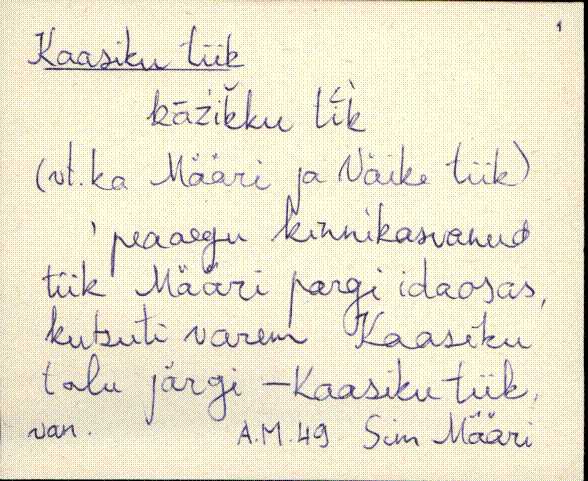 1
Kaasiku tiik
kāžikku tīk
(vt. ka Määri ja Väike tiik)
'peaaegu kinnikasvanud
tiik Määri pargi idaosas,
kutsuti varem Kaasiku
talu järgi – Kaasiku tiik,
van. A.M. 49 Sim Määri